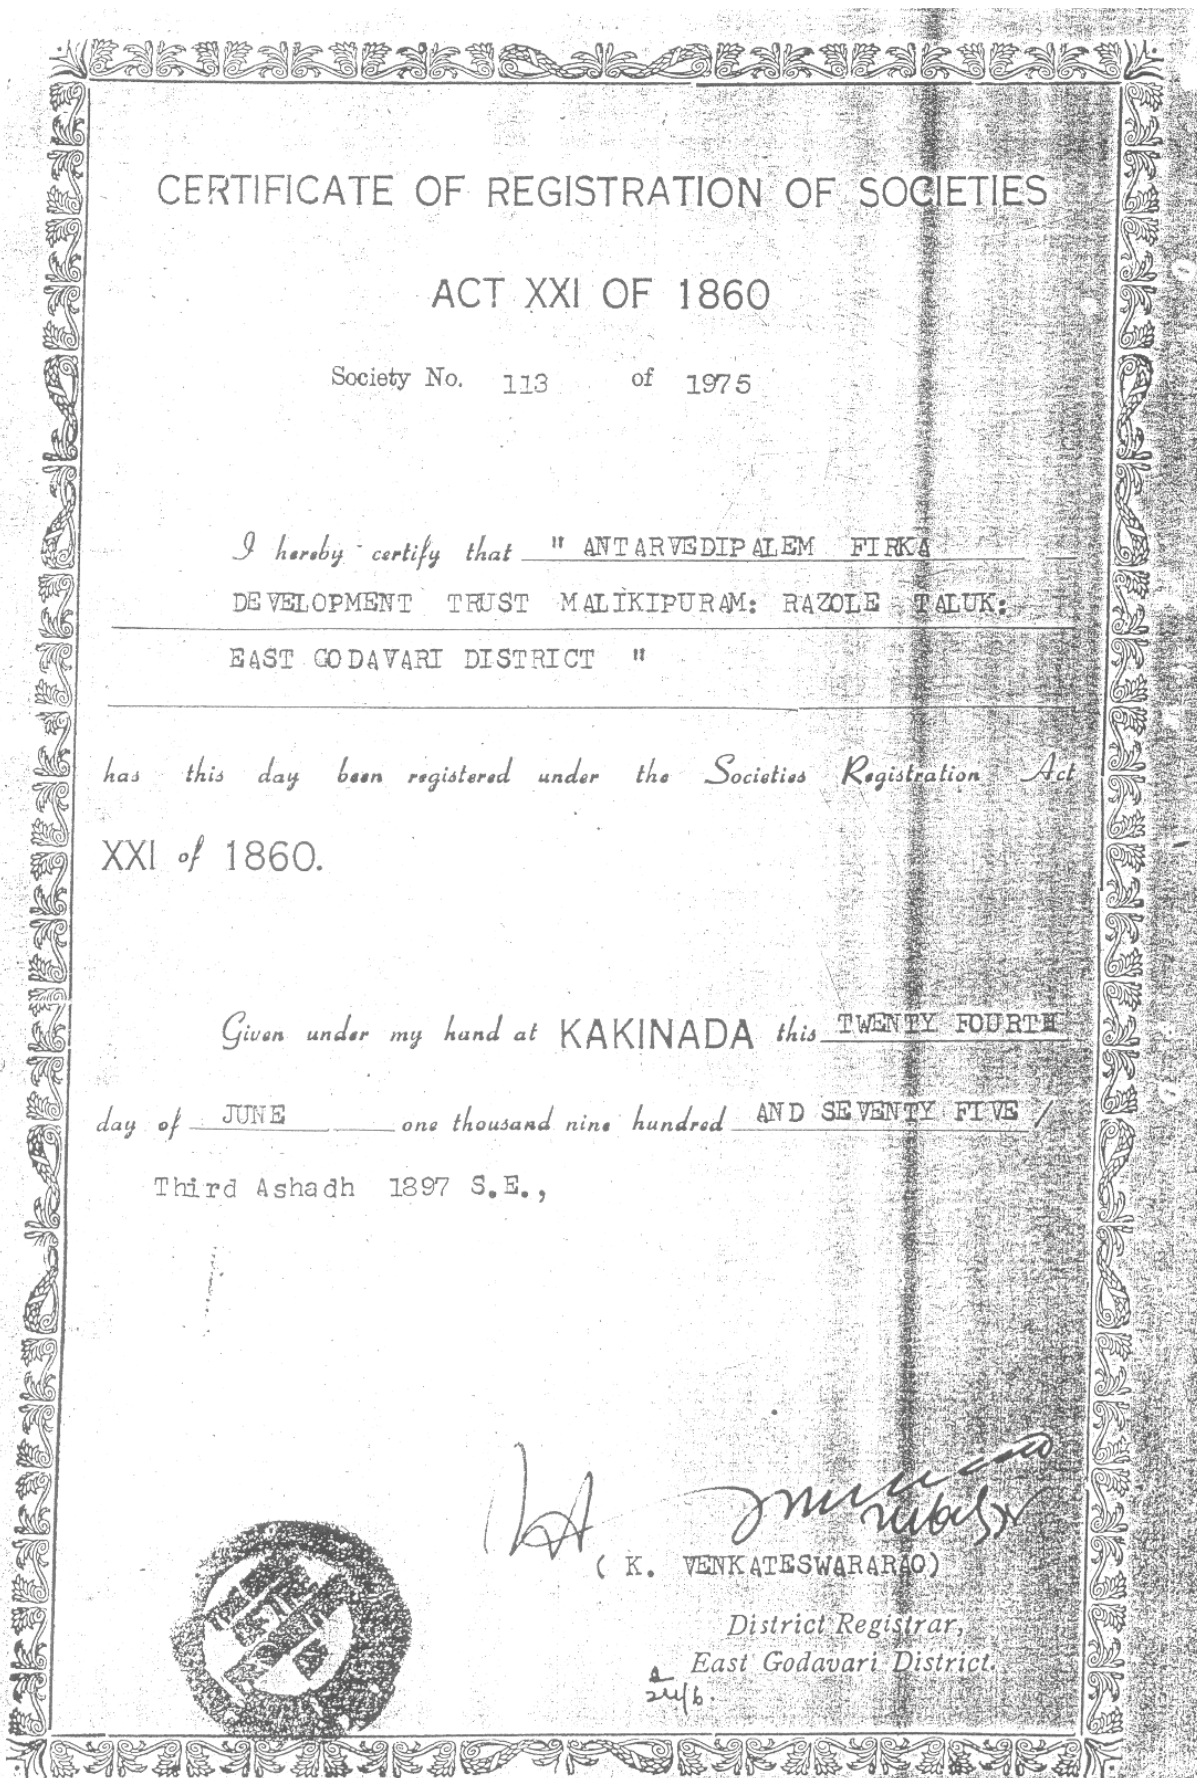 CERTIFICATE OF REGISTRATION OF SOCIETIES
ACT XXI OF 1860
Society No. 113 of 1975
I hereby certify that " ANTARVEDIPALEM FIRKA
DEVELOPMENT TRUST MALIKIPURAM: RAZOLE TALUK:
EAST GODAVARI DISTRICT "
has this day been registered under the Societies Registration Act
XXI of 1860.
Given under my hand at KAKINADA this TWENTY FOURTH
day of JUNE one thousand nine hundred AND SEVENTY FIVE /
Third Ashadh 1897 S.E.,
( K. VENKATESWARARAO)
District Registrar,
East Godavari District.
24/6.